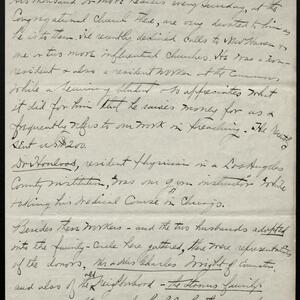 thousand or more hearers every Sunday, at the
Congregational Church there, are very devoted to him as
he is to them. He recently declined calls to New Haven &
one or two more influential Churches. He was a non-
resident & also a resident worker at the Commons
while a Seminary student & so appreciates what
it did for him that he raises money for us &
frequently refers to our work in preaching. He
sent us $200.
Dr resident physician in a Los Angeles
County institution, was our gym instructor while
taking his Medical Course in Chicago.
Besides these workers – and the two husbands adopted
into the family – circle here gathered, there were representatives
of the donors, Mr & Mrs Charles Wright of
and also of the old Neighborhood – the family